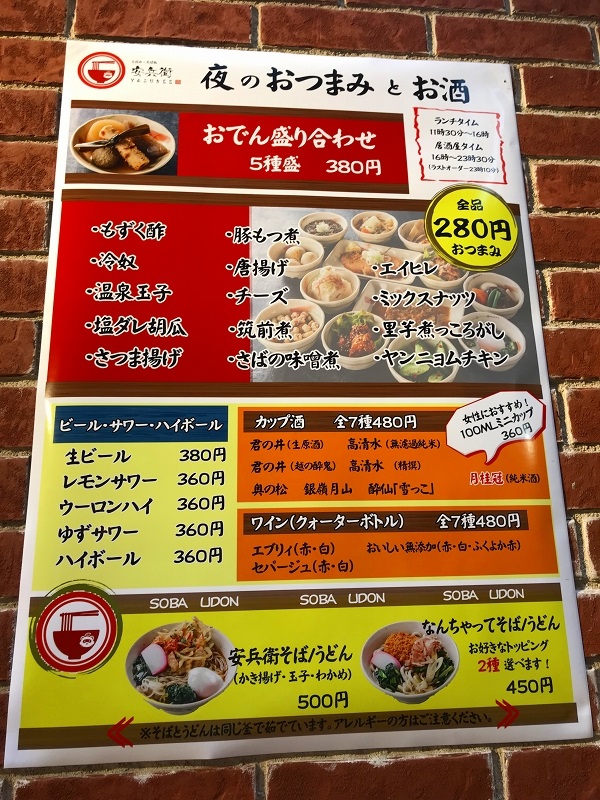 安兵衛
夜のおつまみとお酒
ランチタイム
11時30分～16時
居酒屋タイム
16時～23時30分
(ラストオーダー23時10分)
おでん盛り合わせ
5種盛 380円
全品
280円
おつまみ
・もずく酢
・冷奴
・温泉玉子
・塩ダレ胡瓜
・さつま揚げ
・豚もつ煮
・唐揚げ
・チーズ
・筑前煮
・さばの味噌煮
・エイヒレ
・ミックスナッツ
・里芋煮っころがし
・ヤンニョムチキン
ビール・サワー・ハイボール
生ビール 380円
レモンサワー 360円
ウーロンハイ 360円
ゆずサワー 360円
ハイボール 360円
カップ酒 全7種480円
君の井(生原酒) 高清水(無濾過純米)
君の井(越の酔鬼) 高清水(精撰)
奥の松 銀嶺月山 酔仙「雪っこ」
女性におすすめ!
100MLミニカップ
360円
月桂冠(純米酒)
ワイン(クォーターボトル) 全7種480円
エブリィ(赤・白) おいしい無添加(赤・白・ふくよか赤)
セパージュ(赤・白)
SOBA UDON SOBA UDON SOBA UDON
安兵衛そば/うどん
(かき揚げ・玉子・わかめ)
500円
なんちゃってそば/うどん
お好きなトッピング
2種選べます!
450円
※そばとうどんは同じ釜で茹でています。アレルギーの方はご注意ください。